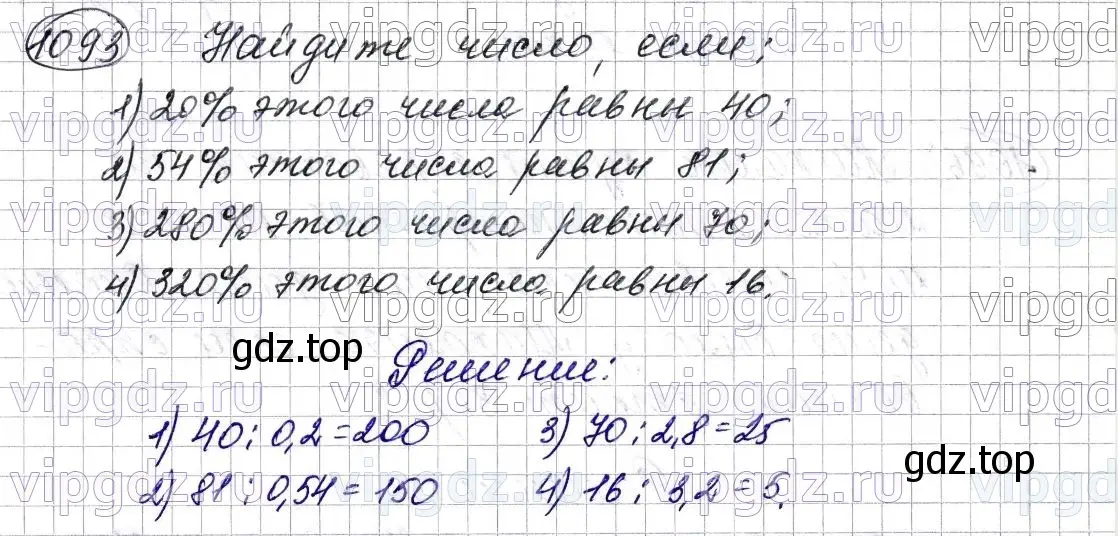 1093 Найдите число, если:
1) 20% этого числа равны 40;
2) 54% этого числа равны 81;
3) 280% этого числа равны 70;
4) 320% этого числа равны 16.
gdz.top
Решение:
1) 40 : 0,2 = 200 3) 70 : 2,8 = 25
2) 81 : 0,54 = 150 4) 16 : 3,2 = 5.
gdz.top
vipgdz.ru